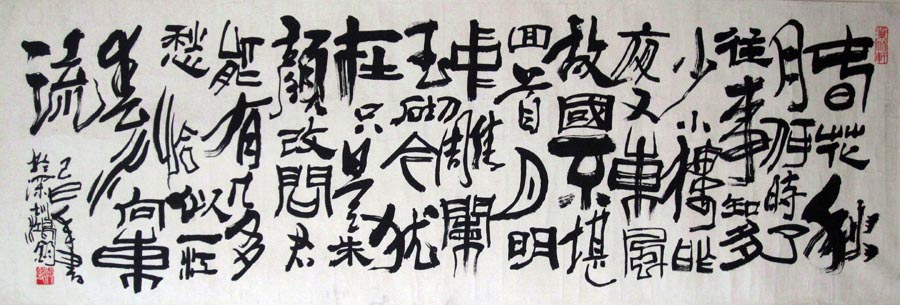 春花秋
月何時了
往事知多
少小樓昨
夜又東風
故國不堪
回首月明
中雕闌
玉砌今猶
在只是朱
顏改問君
能有几多
愁恰似一江
春水向東
流
己丑年書
於深圳